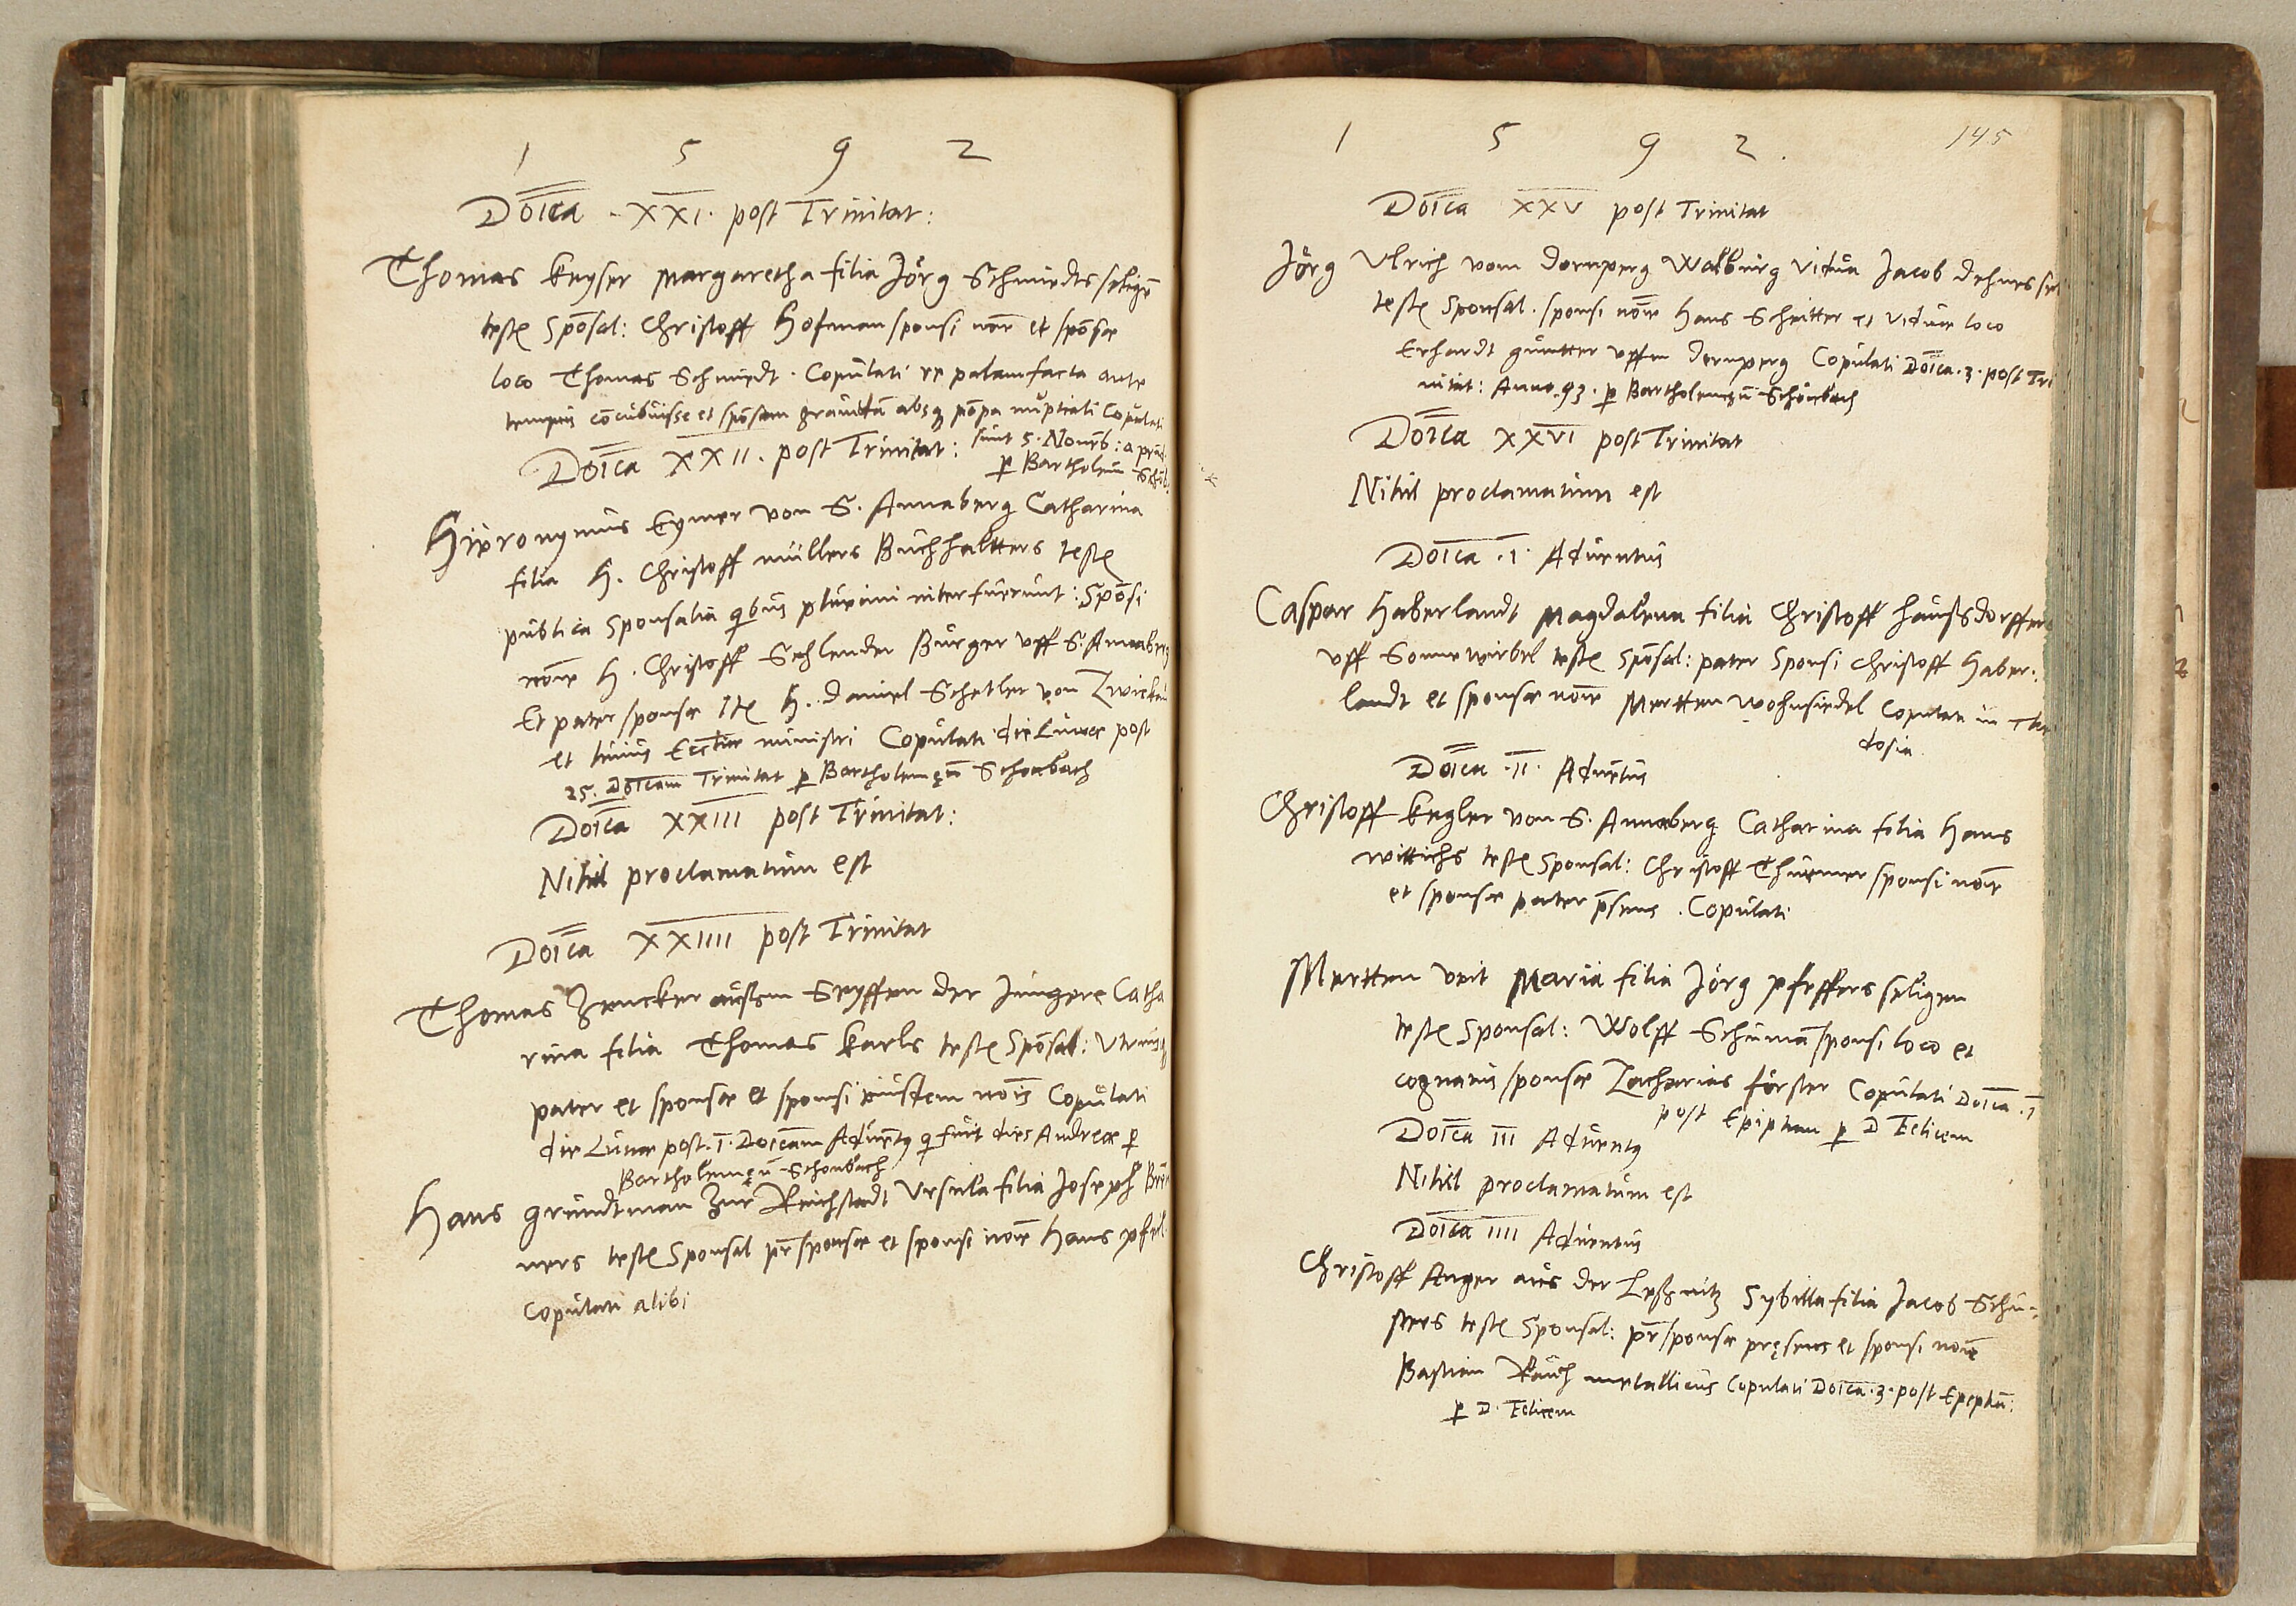 1 5 9 2
Doica · XXI · post Trinitat:
Thomas Keyser Margaretha filia Jörg Schmiedts seligē
teste Spōsal: Christoff Hofman sponsi noīe et spōsae
loco Thomas Schmiedt. Copulati re palamfacta ante
tempus cōcubuisse et spōsam gravidā absq pōpa nuptiali Copulati
sunt 5. Novēb:
Doica XXII. post Trinitat:
p Bartholem
Hieronymus Eymer von S. Annaberg Catharina
filia H. Christoff müllers Buchhaltters teste
publica Sponsalia qbus plurimi interfuerunt: Spōsi
noīe H. Christoff Schlender Bürger uff S. Annaberg
Et pater sponsae Itē H. Daniel Schetler von Zwickau
et huius Eccliae ministri Copulati die Lunae post
25. Doīcam Trinitat p Bartholemęū Schonbach
Doica XXIII post Trinitat:
Nihil proclamatum est
Doica XXIIII post Trinitat
Thomas Zencker aussem Seyffen der Jüngere Catha
rina filia Thomas Karls teste Spōsal: Utriusq
pater et sponsae et sponsi eiusdem nōis Copulati
die Lunae post. I. Doicam Adventq q fuit dies Andreae p
Bartholemęū Schonbach
Hans grundtman Zur Reichstadt Ursula filia Joseph Bren
ners teste Sponsal pr sponsae et sponsi noīe Hans
Copulati alibi
1 5 9 2. 145
Doica XXV post Trinitat
Jörg Ulrich vom Dornperg Walburg vidua Jacob Dehnes sel
teste Sponsal. sponsi noīe Hans Schritter et viduae loco
Erhardt güntter uffm Dernperg Copulati Doica. 3. post Tri
nitat: Anno. 93. p Bartholemęū Schönbach
Doica XXVI post Trinitat
Nihil proclamatum est
Doica . I. Adventus
Caspar Haberlandt Magdalena filia Christoff Haussdorffers
uff Sonnewirbel teste Spōsal: pater Sponsi Christoff Haber.
landt et sponsae noīe Mertten Wohnsiedel Copulati in The
dosia
Doica . II. Advētus
Christoff Kegler von S. Annaberg Catharina filia Hans
wittichs teste Sponsal: Christoff Thürmer sponsi noīe
et sponsae pater p̄sens. Copulati
Mertten Veit Maria filia Jörg Pfeffers seligen
teste Sponsal: Wolff Schumā sponsi loco et
cognatus sponsae Zacharias förster Copulati Doica. I
post Epiphan p D Felicem
Doica III Adventq
Nihil proclamatum est
Doica IIII Adventus
Christoff Anger aus der Lessnitz Sybilla filia Jacob Schu-
sters teste Sponsal: pr sponsae pręsens et sponsi noīe
Bastian Rauch metallicus Copulati Doica. 3. post Epephā:
p D. Felicem